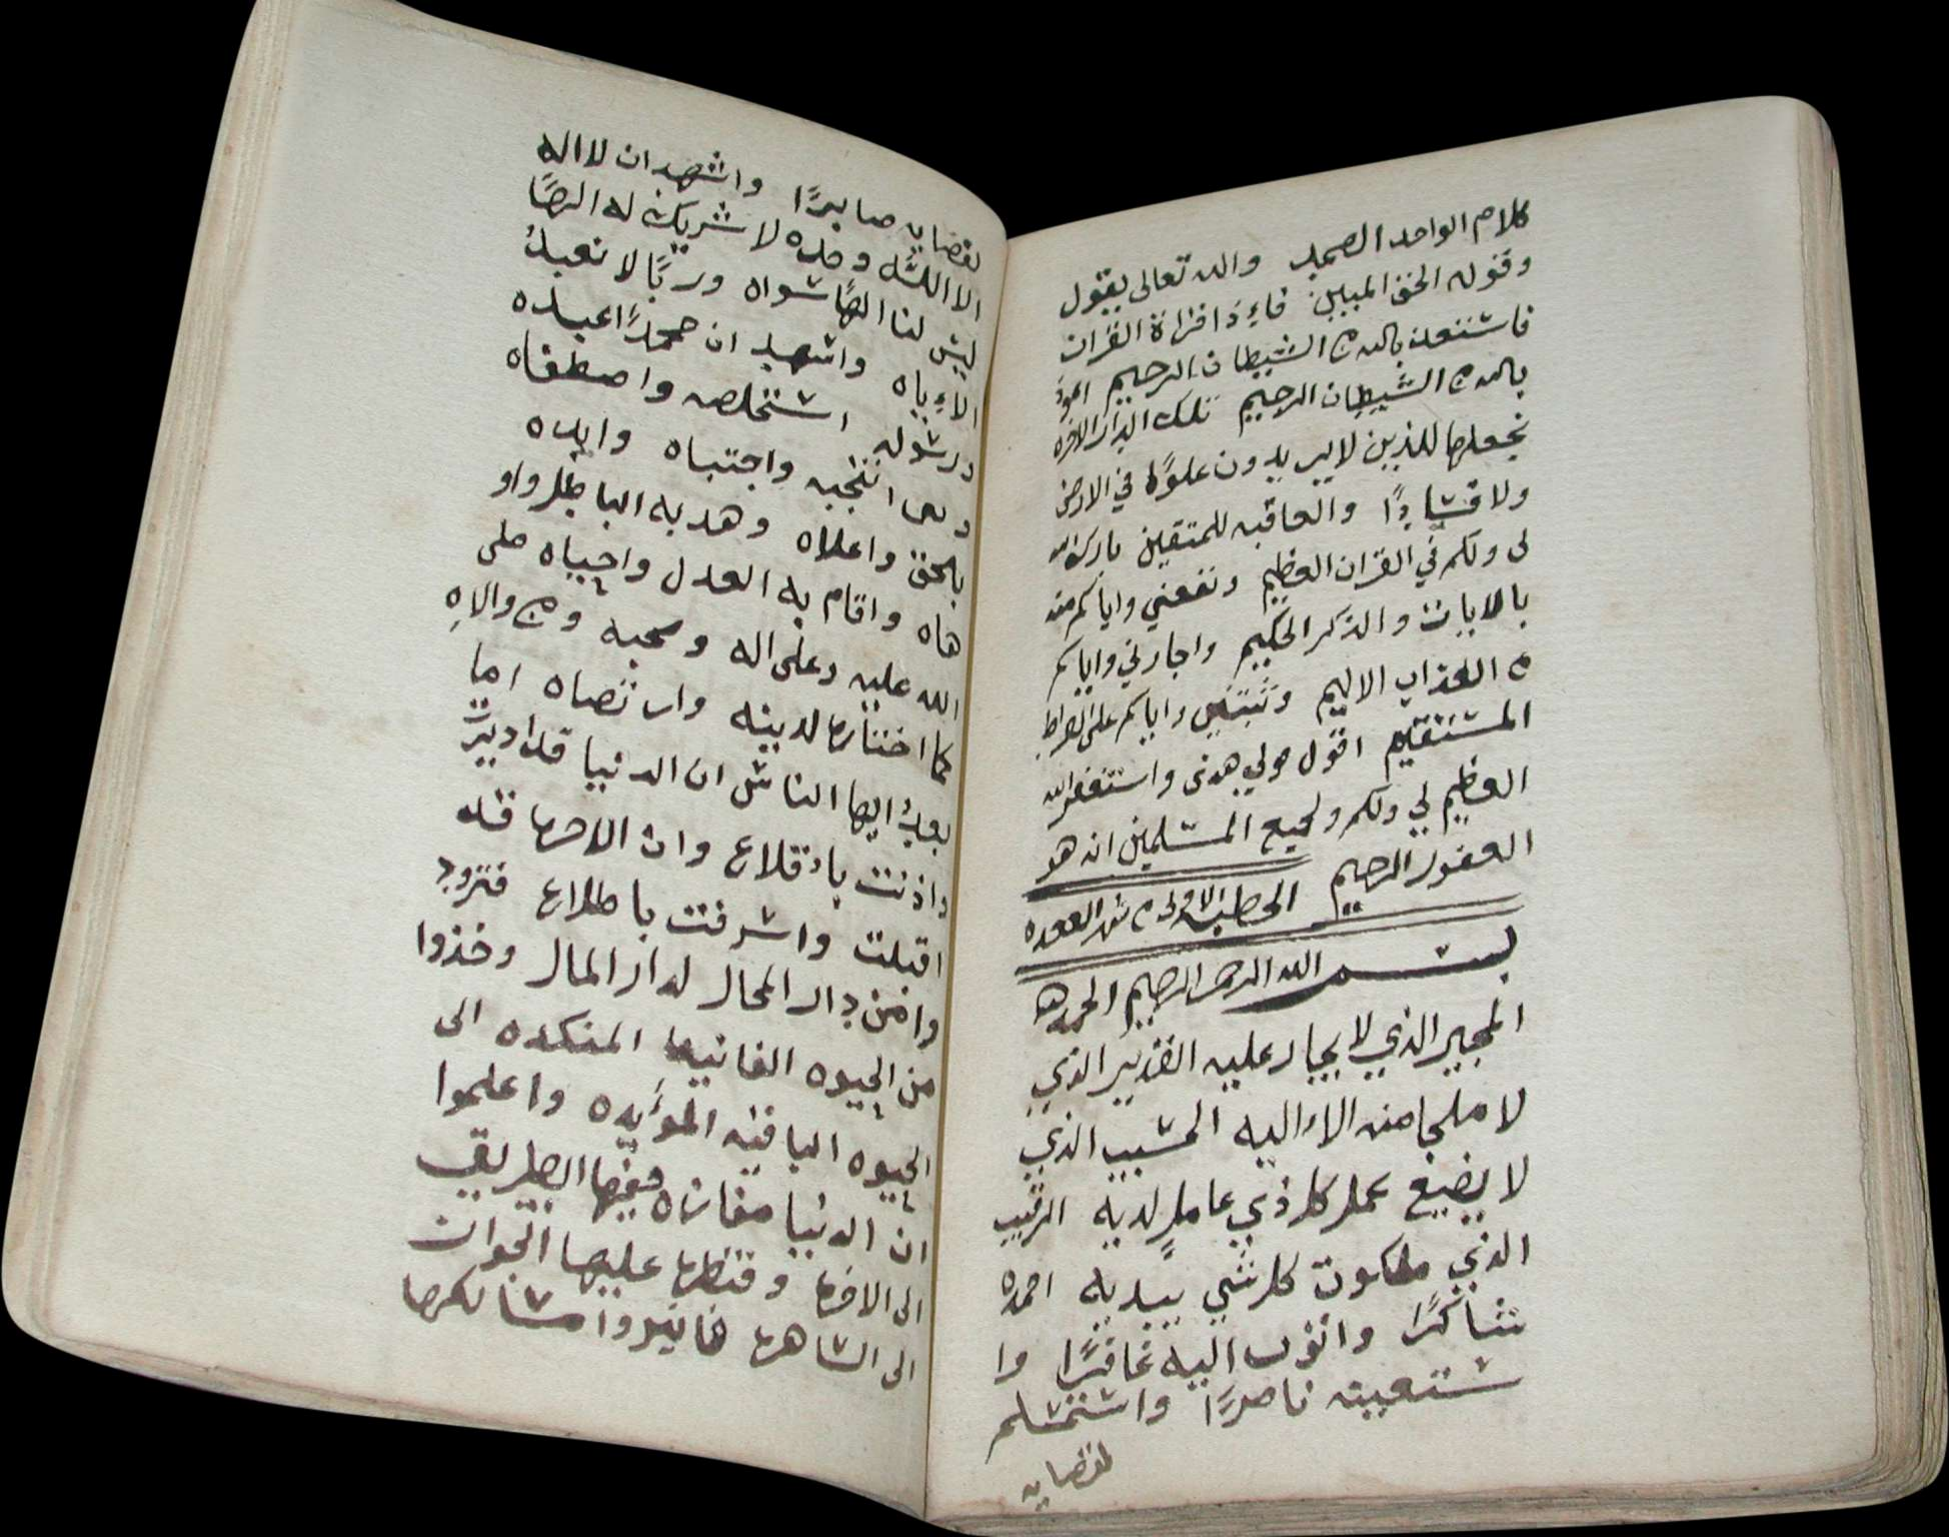 كلام الواحد الصمد والله تعالى يقول
وقوله الحق المبين فاءِذا قراة القران
فاستعذ بالله من الشيطان الرجيم اعوذ
بالله من الشيطان الرجيم تلك الدار الاخره
نجعلها للذين لا يريدون علوًا في الارض
ولا فسادًا والعاقبه للمتقين بارك الله
لي ولكم في القران العظيم ونفعني واياكم منه
بالايات والذكر الحكيم واجارني واياكم
من العذاب الاليم وثبتني واياكم على الصراط
المستقيم اقول قولي هدى واستغفر الله
العظيم لي ولكم ولجميع المسلمين انه هو
الغفور الرحيم الخطبه الاولى من شهر القعده
بسم الله الرحمن الرحيم الحمد لله
المجير الذي لا يجار عليه القدير الذي
لا ملجا منه الاء اليه الحسيب الذي
لا يضيع عمل كل ذي عامل لديه الرقيب
الذي ملكوت كل شي بيديه احمده
شاكرًا واتوب اليه غافرًا وا
ستعينه ناصرًا واستسلم
لقضايه
لقضايه صابرًا واشهد ان لا اله
الا الله وحده لا شريك له الهًا
ليس لنا الهًا سواه وربًا لا نعبدُ
الاءِ اياه واشهد ان محمدًا عبده
ورسوله استخلصه واصطفاه
انتجبه واجتباه وايده
بالحق واعلاه وهد به الباطل واو
هاه واقام به العدل واحياه صلى
الله عليه وعلى اله وصحبه ومن والاهِ
كما اختارها لدينه وارتضاه اما
بعدُ ايها الناس ان الدنيا قد ادبرت
واذنت باءقلاع وان الاخرها قد
اقبلت واشرفت باطلاع فتزود
وا من دار المحال لدار المال وخذوا
من الحيوه الفانيها المنكده الى
الحيوه الباقيه المؤيده واعلموا
ان الدنيا مفازه فيها الطريق
الى الاخرها وقنطرها عليها الجواز
الى الساهرها فانيروا مسالكها